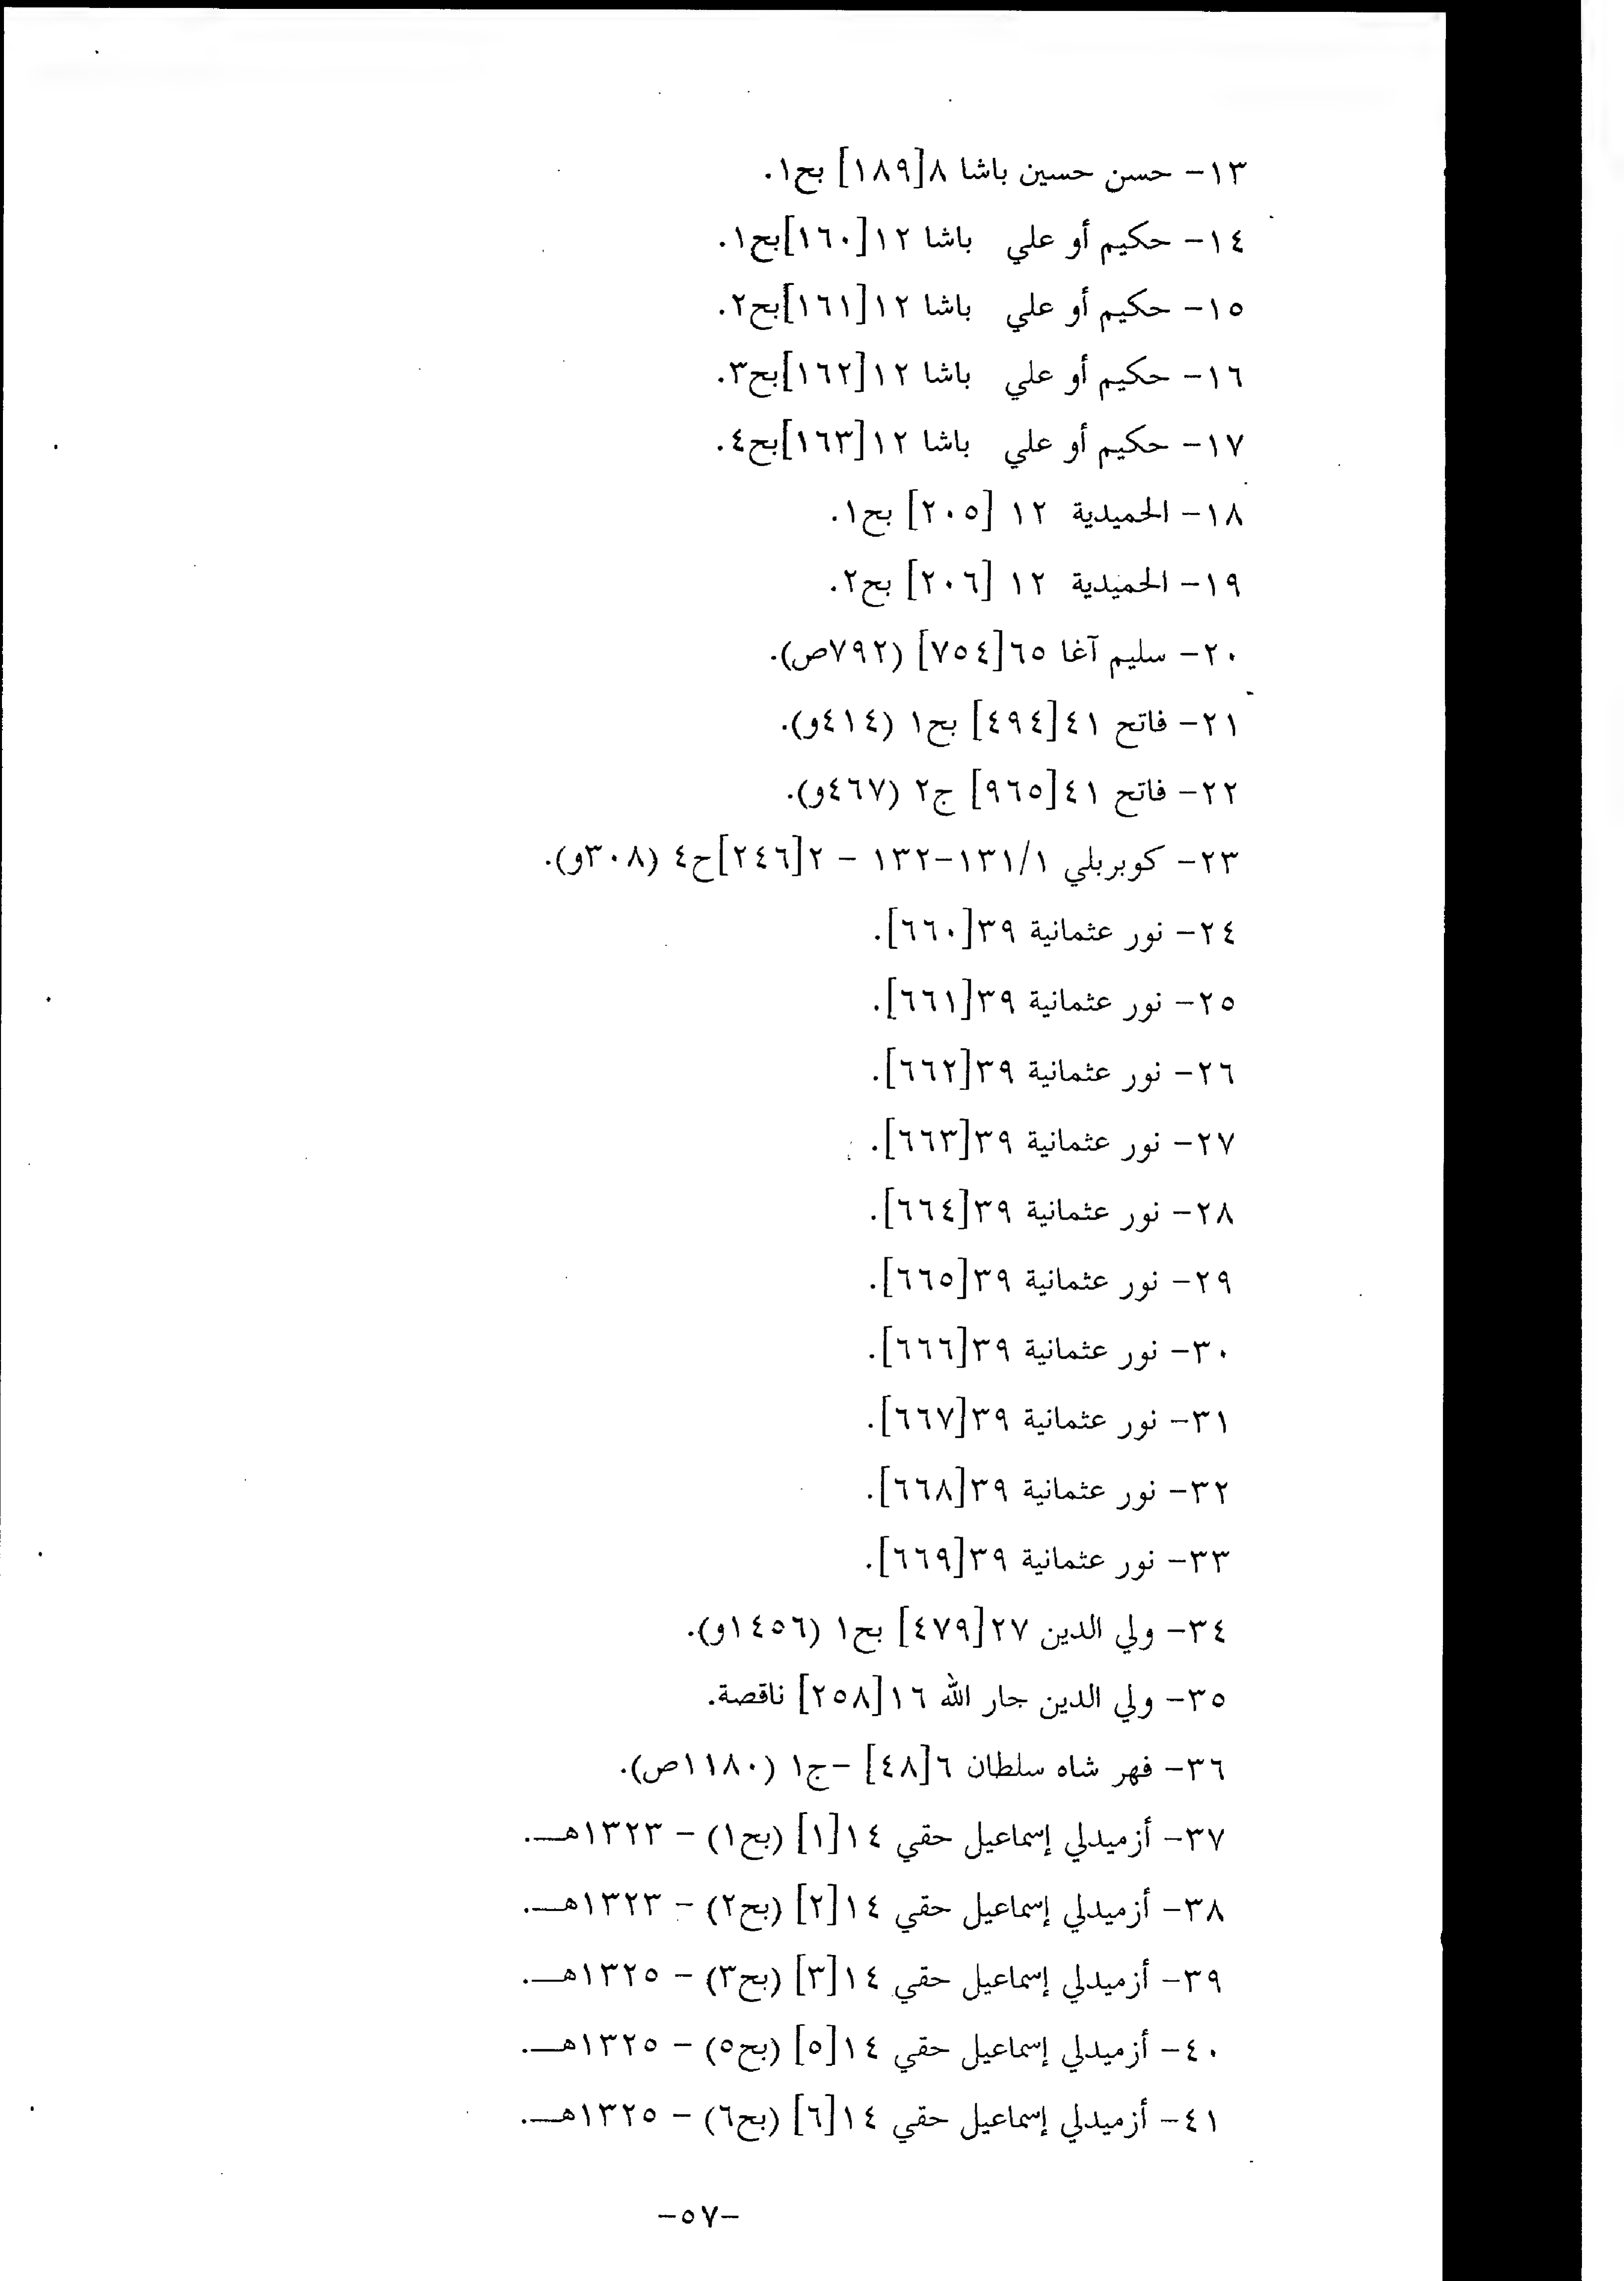 ١٣- حسن حسين باشا ٨[١٨٩] بح١.
١٤- حكيم أو علي باشا ١٢[١٦٠]بح١.
١٥- حكيم أو علي باشا ١٢[١٦١]بح٢.
١٦- حكيم أو علي باشا ١٢[١٦٢]بح٣.
١٧- حكيم أو علي باشا ١٢[١٦٣]بح٤.
١٨- الحميدية ١٢ [٢٠٥] بح١.
١٩- الحميدية ١٢ [٢٠٦] بح٢.
٢٠- سليم آغا ٦٥[٧٥٤] (٧٩٢ص).
٢١- فاتح ٤١[٤٩٤] بح١ (٤١٤و).
٢٢- فاتح ٤١[٩٦٥] ج٢ (٤٦٧و).
٢٣- كوبربلي ١٣١/١-١٣٢ - ٢[٢٤٦]ح٤ (٣٠٨و).
٢٤- نور عثمانية ٣٩[٦٦٠].
٢٥- نور عثمانية ٣٩[٦٦١].
٢٦- نور عثمانية ٣٩[٦٦٢].
٢٧- نور عثمانية ٣٩[٦٦٣].
٢٨- نور عثمانية ٣٩[٦٦٤].
٢٩- نور عثمانية ٣٩[٦٦٥].
٣٠- نور عثمانية ٣٩[٦٦٦].
٣١- نور عثمانية ٣٩[٦٦٧].
٣٢- نور عثمانية ٣٩[٦٦٨].
٣٣- نور عثمانية ٣٩[٦٦٩].
٣٤- ولي الدين ٢٧[٤٧٩] بح١ (١٤٥٦و).
٣٥- ولي الدين جار الله ١٦[٢٥٨] ناقصة.
٣٦- فهر شاه سلطان ٦[٤٨] -ج١ (١١٨٠ص).
٣٧- أزميدلي إسماعيل حقي ١٤[١] (بح١) - ١٣٢٣هـ.
٣٨- أزميدلي إسماعيل حقي ١٤[٢] (بح٢) - ١٣٢٣هـ.
٣٩- أزميدلي إسماعيل حقي ١٤[٣] (بح٣) - ١٣٢٥هـ.
٤٠- أزميدلي إسماعيل حقي ١٤[٥] (بح٥) - ١٣٢٥هـ.
٤١- أزميدلي إسماعيل حقي ١٤[٦] (بح٦) - ١٣٢٥هـ.
-٥٧-